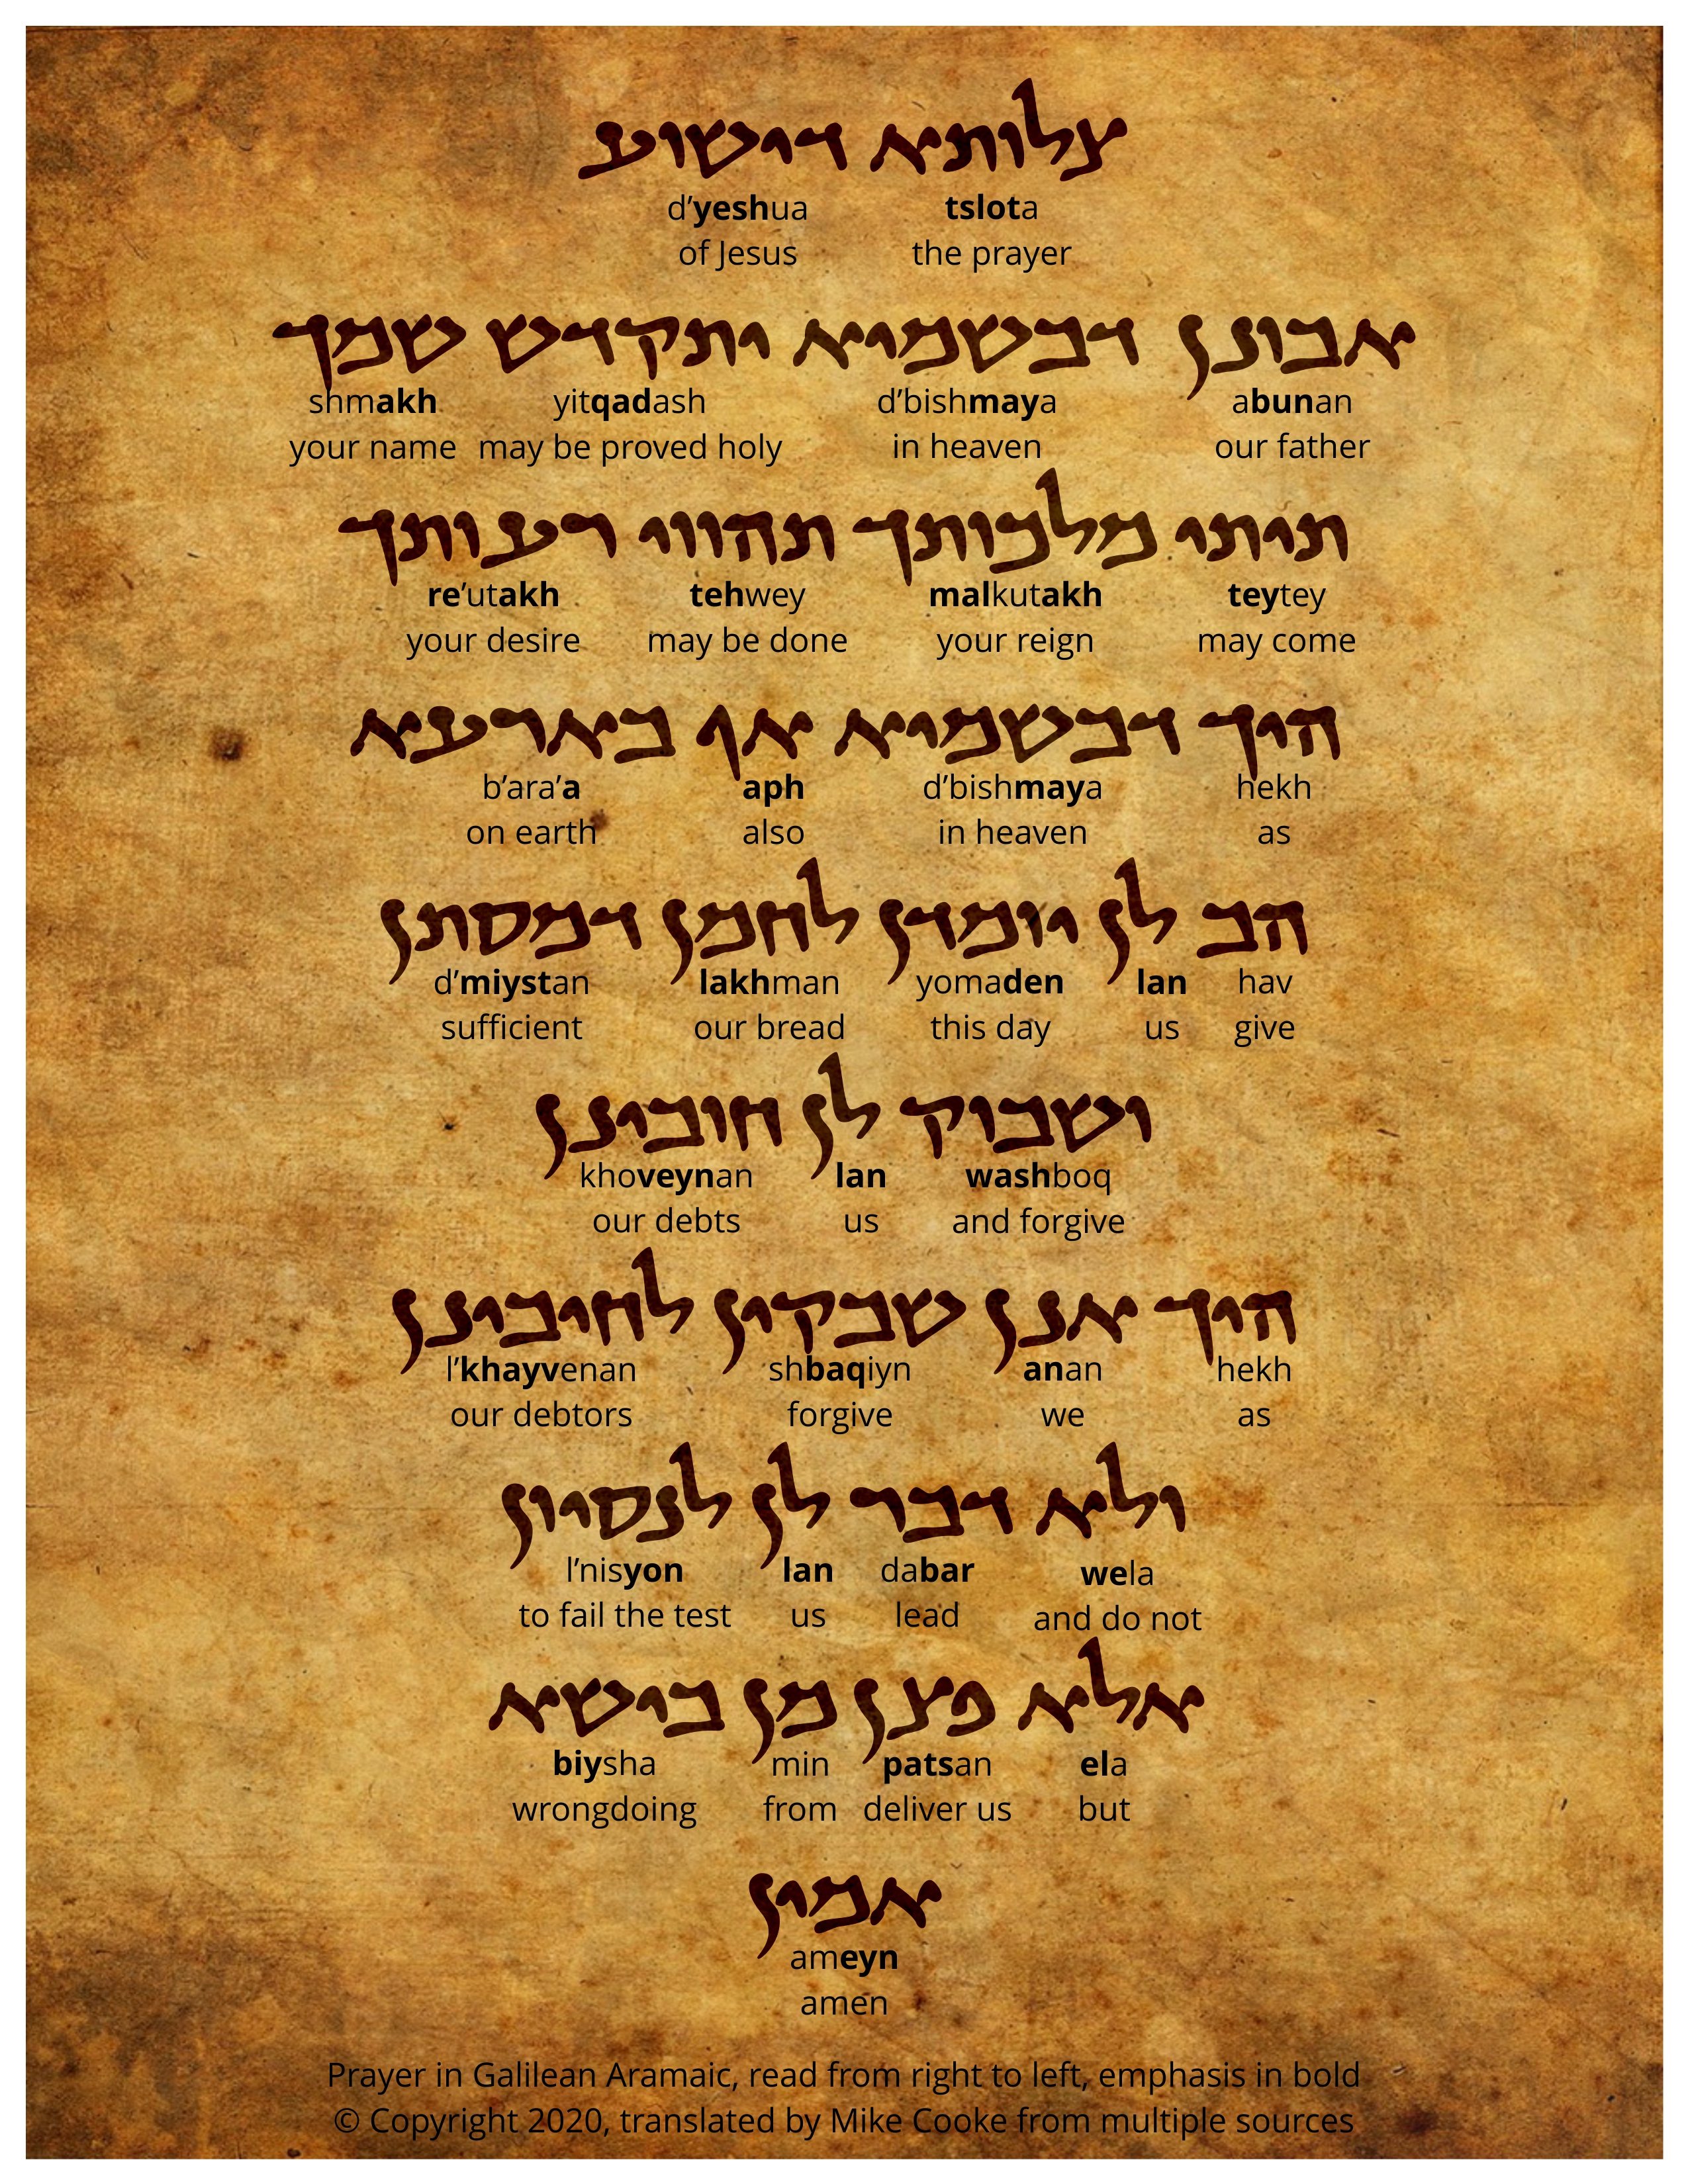 צלותא דישוע
d'yeshua tslota
of Jesus the prayer
אבונן דבשמיא יתקדש שמך
shmakh yitqadash d'bishmaya abunan
your name may be proved holy in heaven our father
תיתי מלכותך תהווי רעותך
re'utakh tehwey malkutakh teytey
your desire may be done your reign may come
היך דבשמיא אף בארעא
b'ara'a aph d'bishmaya hekh
on earth also in heaven as
הב לן יומדן לחמן דמסתן
d'miystan lakhman yomaden lan hav
sufficient our bread this day us give
ושבוק לן חובינן
khoveynan lan washboq
our debts us and forgive
היך אנן שבקין לחיבינן
l'khayvenan shbaqiyn anan hekh
our debtors forgive we as
ולא דבר לן לנסיון
l'nisyon lan dabar wela
to fail the test us lead and do not
אלא פצן מן בישא
biysha min patsan ela
wrongdoing from deliver us but
אמין
ameyn
amen
Prayer in Galilean Aramaic, read from right to left, emphasis in bold
© Copyright 2020, translated by Mike Cooke from multiple sources